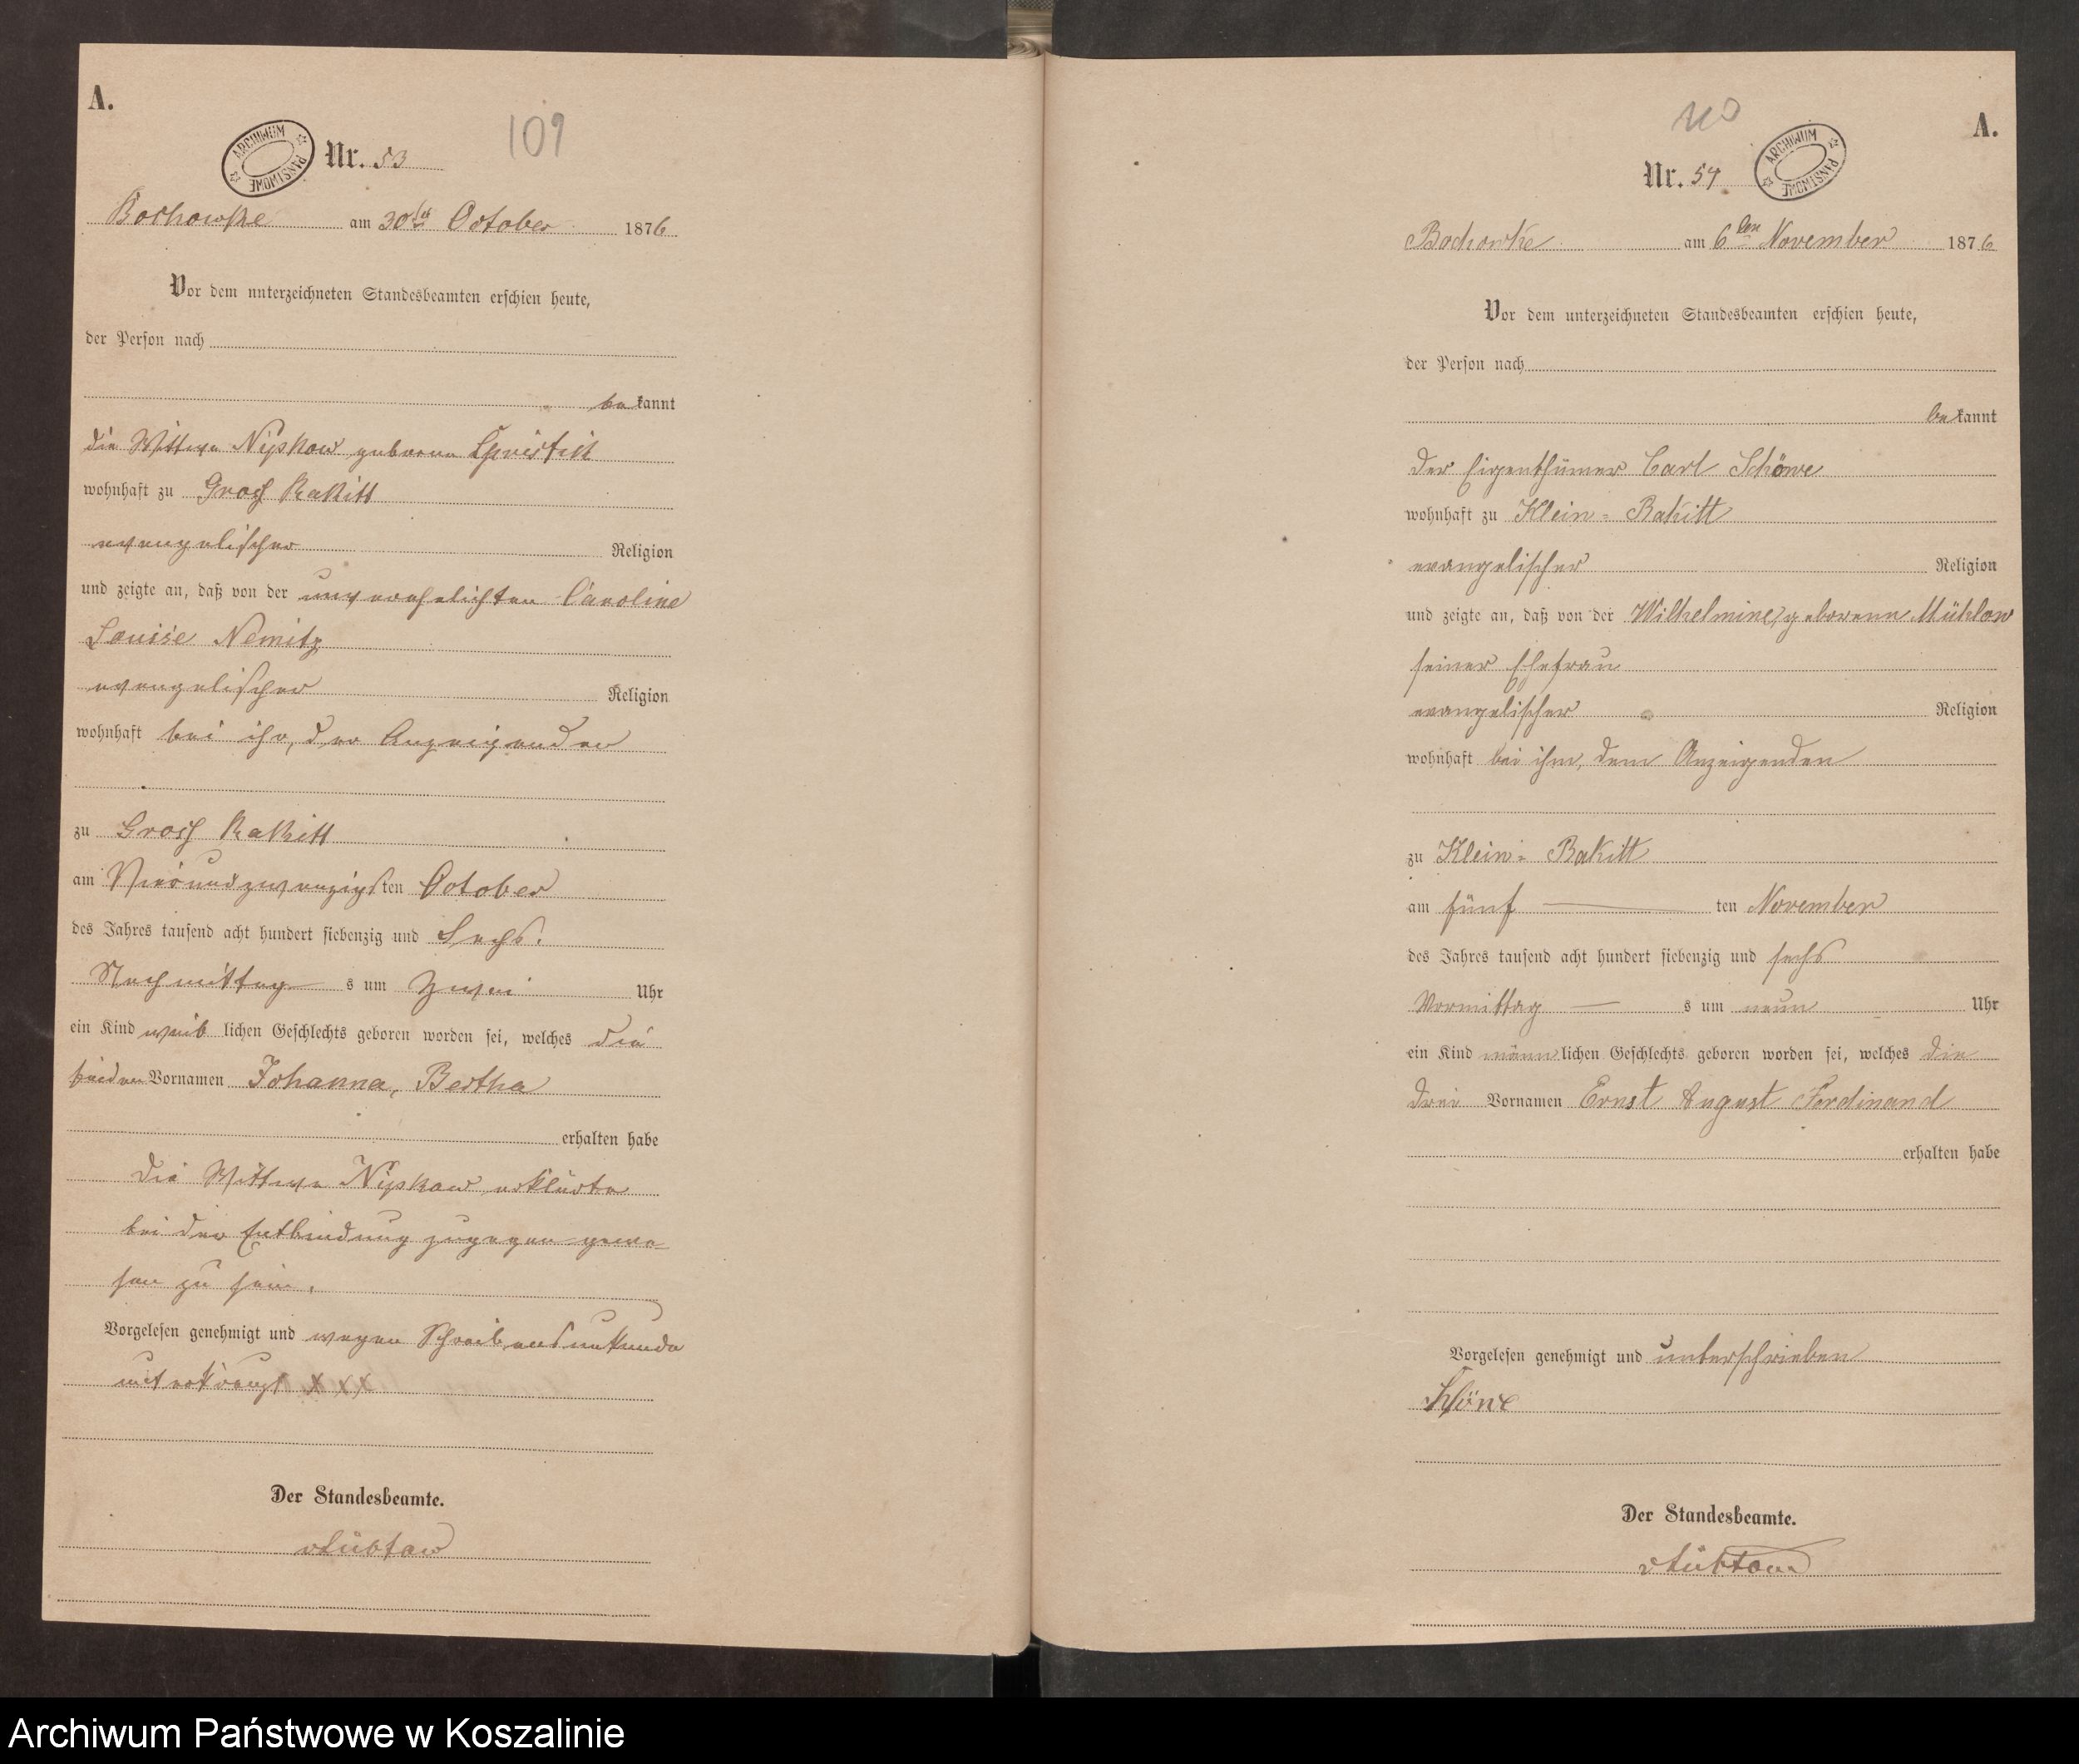 A.
109
ARCHIWUM PAŃSTWOWE
Nr. 53
Bochowke am 30ten October 1876
Vor dem unterzeichneten Standesbeamten erschien heute,
der Person nach
bekannt
die Wittwe Nipkow geborne
wohnhaft zu Gross Rakitt
evangelischer Religion
und zeigte an, daß von der unverehelichten Caroline
Louise Nemitz
evangelischer Religion
wohnhaft bei ihr, der Anzeigenden
zu Gross Rakitt
am Vierundzwanzigsten October
des Jahres tausend acht hundert siebenzig und Sechs.
Nachmittags um Zwei Uhr
ein Kind weiblichen Geschlechts geboren worden sei, welches die
beiden Vornamen Johanna, Bertha
erhalten habe
Die Wittwe Nipkow erklärte
bei der Entbindung zugegen gewe-
sen zu sein.
Vorgelesen genehmigt und wegen Schreibensunkunde
unterkreuzt X X X
Der Standesbeamte.
vLübtow
A.
110
ARCHIWUM PAŃSTWOWE
Nr. 54
Bochowke am 6ten November 1876
Vor dem unterzeichneten Standesbeamten erschien heute,
der Person nach
bekannt
der Eigenthümer Carl Schöwe
wohnhaft zu Klein-Rakitt
evangelischer Religion
und zeigte an, daß von der Wilhelmine, geborenen Mühlow
seiner Ehefrau
evangelischer Religion
wohnhaft bei ihm, dem Anzeigenden
zu Klein-Rakitt
am fünften November
des Jahres tausend acht hundert siebenzig und sechs
Vormittags um neun Uhr
ein Kind männlichen Geschlechts geboren worden sei, welches die
drei Vornamen Ernst August Ferdinand
erhalten habe
Vorgelesen genehmigt und unterschrieben
Schöwe
Der Standesbeamte.
vLübtow
Archiwum Państwowe w Koszalinie